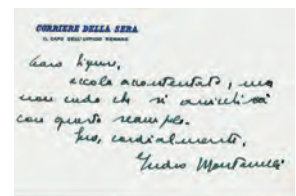 CORRIERE DELLA SERA
IL CAPO DELL'UFFICIO ROMANO
Caro Signore,
eccola accontentato, ma
non credo che si arricchirà
con questo scampolo.
Suo, cordialmente,
Indro Montanelli